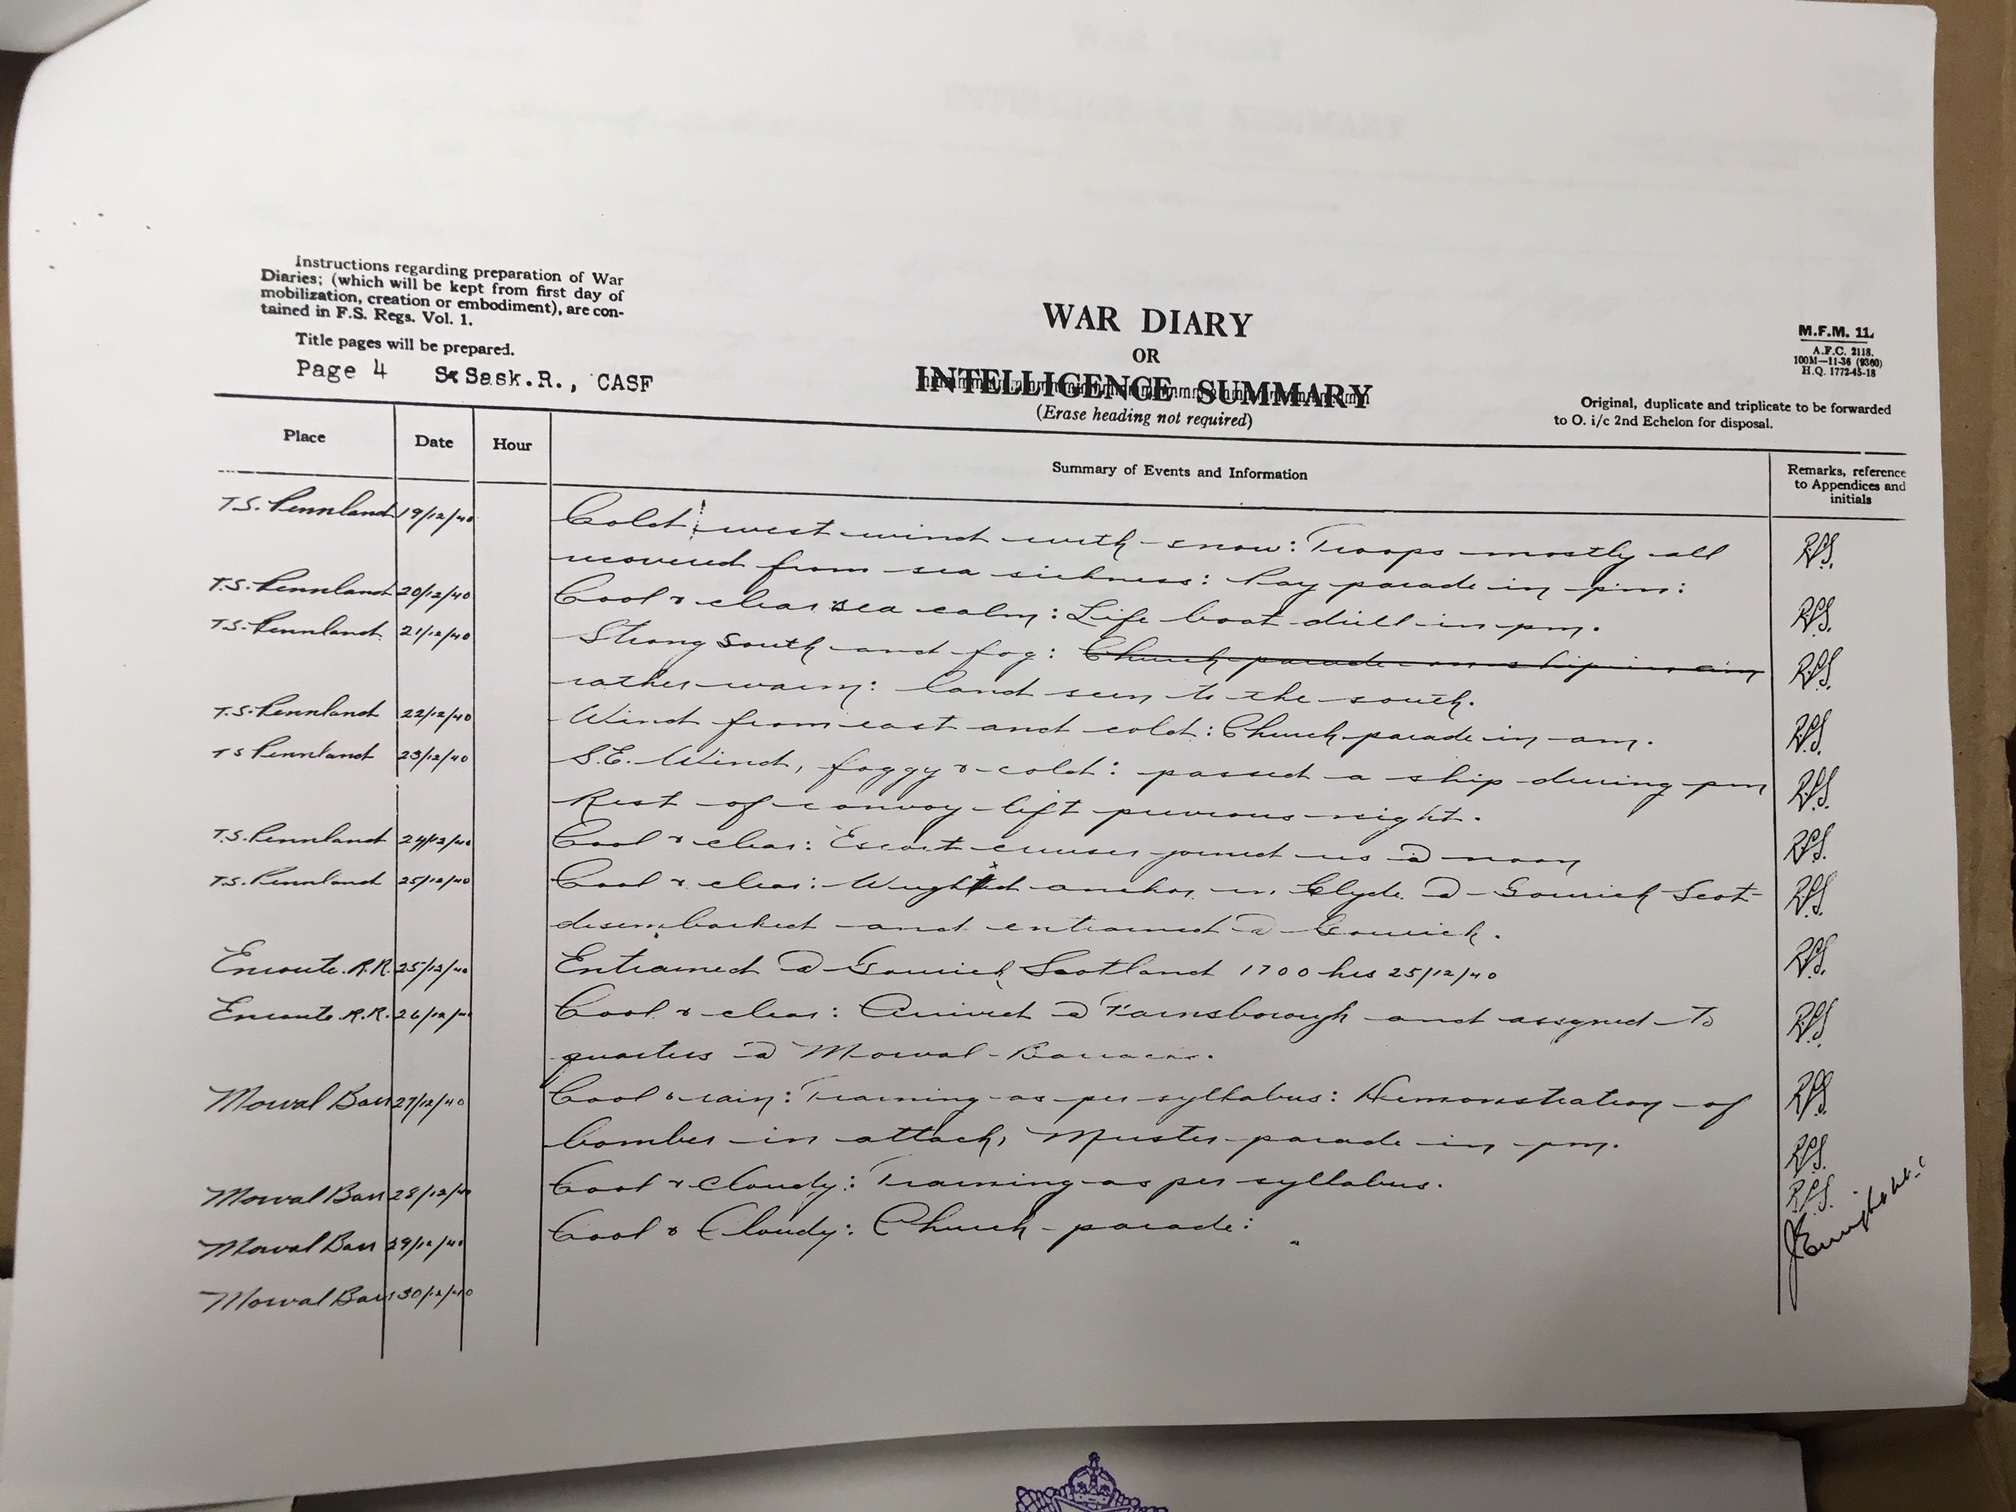 Instructions regarding preparation of War
Diaries; (which will be kept from first day of
mobilization, creation or embodiment), are con-
tained in F.S. Regs. Vol. 1.
Title pages will be prepared.
Page 4 S Sask.R., CASF
WAR DIARY
OR
INTELLIGENCE SUMMARY
(Erase heading not required)
M.F.M. 11
A.F.C. 2118.
100M—11-36 (9360)
H.Q. 1772-45-18
Original, duplicate and triplicate to be forwarded
to O. i/c 2nd Echelon for disposal.
Place Date Hour Summary of Events and Information Remarks, reference
to Appendices and
initials
T.S. Pennland 19/12/40 Cold: west wind with snow: Troops mostly all
recovered from sea sickness: Pay parade in pm:
T.S. Pennland 20/12/40 Cool & clear sea calm: Life boat drill in pm.
T.S. Pennland 21/12/40 Strong South and fog: Church parade on ship in am
rather warm: land seen to the south.
T.S. Pennland 22/12/40 Wind from east and cold: Church parade in am.
TS Pennland 23/12/40 S.E. Wind, foggy & cold: passed a ship during pm
Rest of convoy left previous night.
T.S. Pennland 24/12/40 Cool & clear: Escort cruiser joined us @ noon
T.S. Pennland 25/12/40 Cool & clear: Weighted anchor in Clyde @ Gourick Scot-
disembarked and entrained @ Gourick.
Enroute R.R. 25/12/40 Entrained @ Gourick Scotland 1700 hrs 25/12/40
Enroute R.R. 26/12/40 Cool & clear: Arrived @ Farnsborough and assigned to
quarters @ Morval Barracks.
Morval Barr 27/12/40 Cool & rain: Training as per syllabus: Demonstration of
bomber in attack, Muster parade in pm.
Morval Barr 28/12/40 Cool & cloudy: Training as per syllabus.
Morval Barr 29/12/40 Cool & Cloudy: Church parade:
Morval Barr 30/12/40